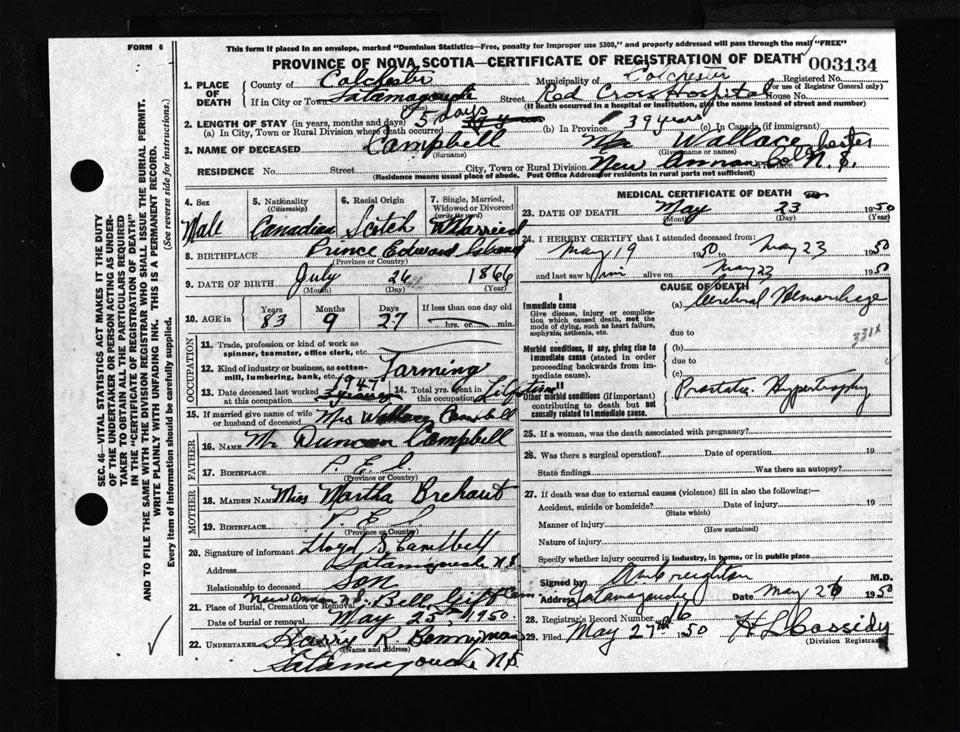 FORM 6
This form if placed in an envelope, marked "Dominion Statistics—Free, penalty for improper use $300," and properly addressed will pass through the mail "FREE"
PROVINCE OF NOVA SCOTIA—CERTIFICATE OF REGISTRATION OF DEATH 003134
1. PLACE OF DEATH County of Colchester Municipality of Colchester Registered No.
(For use of Registrar General only)
If in City or Town Tatamagouche Street Red Cross Hospital House No.
(If death occurred in a hospital or institution, give the name instead of street and number)
2. LENGTH OF STAY (in years, months and days) 5 days
(a) In City, Town or Rural Division where death occurred (b) In Province 39 years (c) In Canada (if immigrant)
3. NAME OF DECEASED Campbell Wallace
(Surname) (Given name or names)
RESIDENCE No. Street City, Town or Rural Division New Annan Colchester N.S.
(Residence means usual place of abode. Post Office Address for residents in rural parts not sufficient)
4. Sex Male
5. Nationality (Citizenship) Canadian
6. Racial Origin Scotch
7. Single, Married, Widowed or Divorced (write the word) Married
8. BIRTHPLACE Prince Edward Island
(Province or Country)
9. DATE OF BIRTH July 26 1866
(Month) (Day) (Year)
10. AGE in Years Months Days If less than one day old
83 9 27 hrs. or min.
OCCUPATION
11. Trade, profession or kind of work as spinner, teamster, office clerk, etc.
12. Kind of industry or business, as cotton-mill, lumbering, bank, etc. Farming
13. Date deceased last worked at this occupation 1947
14. Total yrs. spent in this occupation Lifetime
15. If married give name of wife or husband of deceased Mrs Wallace Campbell
FATHER
16. NAME Mr Duncan Campbell
17. BIRTHPLACE P.E.I.
(Province or Country)
MOTHER
18. MAIDEN NAME Miss Martha Brehaut
19. BIRTHPLACE P.E.I.
(Province or Country)
20. Signature of informant Lloyd S Campbell
Address Tatamagouche N.S.
Relationship to deceased Son
21. Place of Burial, Cremation or Removal New Annan N.S. Bell
Date of burial or removal May 25, 1950
22. UNDERTAKER Harry R Bonnyman
(Name and address)
Tatamagouche N.S.
MEDICAL CERTIFICATE OF DEATH
23. DATE OF DEATH May 23 1950
(Month) (Day) (Year)
24. I HEREBY CERTIFY that I attended deceased from:
May 19 1950 to May 23 1950
and last saw him alive on May 23 1950
CAUSE OF DEATH
I
Immediate cause
Give disease, injury or complication which caused death, not the mode of dying, such as heart failure, asphyxia, asthenia, etc.
(a) Cerebral Hemorrhage
due to
331x
Morbid conditions, if any, giving rise to immediate cause (stated in order proceeding backwards from immediate cause).
(b)
due to
(c)
II
Other morbid conditions (if important) contributing to death but not causally related to immediate cause.
Prostatic Hypertrophy
25. If a woman, was the death associated with pregnancy?
26. Was there a surgical operation? Date of operation 19
State findings Was there an autopsy?
27. If death was due to external causes (violence) fill in also the following:—
Accident, suicide or homicide? Date of injury 19
(State which)
Manner of injury
(How sustained)
Nature of injury
Specify whether injury occurred in industry, in home, or in public place
Signed by Creighton M.D.
Address Tatamagouche Date May 26 1950
28. Registrar's Record Number 16
29. Filed May 27th 1950 H L Cassidy
(Division Registrar)
SEC. 46—VITAL STATISTICS ACT MAKES IT THE DUTY OF THE UNDERTAKER OR PERSON ACTING AS UNDERTAKER TO OBTAIN ALL THE PARTICULARS REQUIRED IN THE "CERTIFICATE OF REGISTRATION OF DEATH" AND TO FILE THE SAME WITH THE DIVISION REGISTRAR WHO SHALL ISSUE THE BURIAL PERMIT.
WRITE PLAINLY WITH UNFADING INK. THIS IS A PERMANENT RECORD.
Every item of information should be carefully supplied. (See reverse side for instructions.)